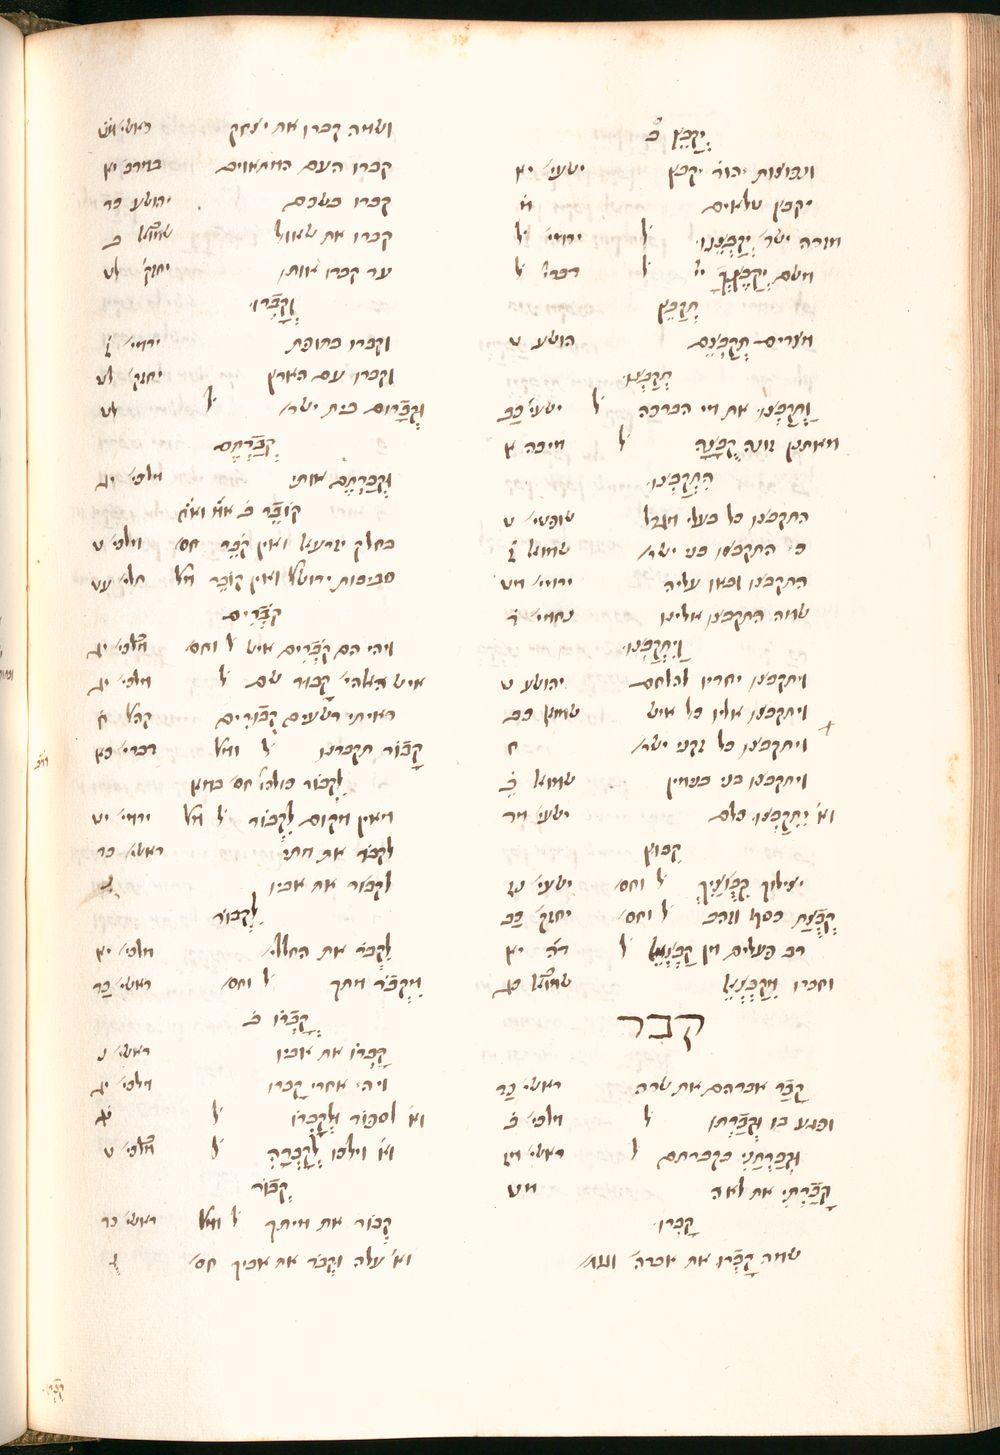 יְקַבֵּץ ב֯
ונפוצות יהוד׳ יקבץ ישעי׳ יא
יקבץ טלאים מ
מזרה ישר׳ יְקַבְּצֶנּוּ ל ירמי׳ ל
משם יְקַבֶּצְךָ יי׳ ל דברי׳ ל
תְּקַבֵּץ
מצרים תְּקַבְּצֵם הושע ט
תְּקַבְּצוּ
וַתְּקַבְּצוּ את מי הברכה ל ישעי׳ כב
מאתנן זונה קִבָּצָה ל מיכה א
הִתְקַבְּצוּ
התקבצו כל בעלי מגדל שופטי׳ ט
כי התקבצו בני ישר׳ שמואל
התקבצו ובאו עליה ירמי׳ מט
שמה התקבצו אלינו נחמי׳ ד
וַיִּתְקַבְּצוּ
ויתקבצו יחדיו להלחם יהושע ט
ויתקבצו אליו כל איש שמוא׳ כב
ויתקבצו כל זקני ישר׳ ח
ויתקבצו בני בנימין שמואל ב
וא׳ יִתְקַבְּצוּ כלם ישעי׳ מד
קבוץ
יצילוך קִבּוּצַיִךְ ל וחס׳ ישעי׳ נז
קְבֻצַת כסף ונחב ל וחס׳ יחזק׳ כב
רב פעלים מן קַבְצְאֵל ל ד״ה יא
וחברו מִקַּבְצְאֵל שמוא׳ כג
קבר
קָבַר אברהם את שרה ראשי׳ כג
ופגע בו וּקְבַרְתּוֹ ל מלכי׳ ב
וּקְבַרְתַּנִי בקברתם ל ראשי׳ מז
קָבַרְתִּי את לאה מט
קָבְרוּ
שמה קָבְרוּ את אברה׳
ושמה קברו את יצחק ראשי׳ מט
קברו העם המתאוים במדב׳ יא
קברו בשכם יהושע כד
קברו את שאול שמוא׳ ב
עד קברו אותו יחזק׳ לט
וְקָבְרוּ
וקברו בתופת ירמי׳
וקברו עם הארץ יחזק׳ לט
וּקְבָרוּם בבית ישר׳ ל לט
קְבַרְתֶּם
וּקְבַרְתֶּם אותי מלכי׳ יג
קוֹבֵר ב
בחלק יזרעאל ואין קֹבֵר חס׳ מלכי׳ ט
סביבות ירושל׳ ואין קוֹבֵר מל׳ תלי׳ עט
קֹבְרִים
ויהי הם קֹבְרִים איש ל וחס׳ מלכי׳ יג
איש האלהי׳ קָבוּר שם ל מלכי׳ יג
ראיתי רשעים קְבֻרִים קהל׳ ח
קָבוֹר תקברנו ל ומל׳ דברי׳ כא
לִקְבּוֹר כולהו׳ חס׳ במא
מאין מקום לִקְבּוֹר ל מל׳ ירמי׳ יט
לקבר את מתי ראשי׳ כג
לקבור את אביו
לִקְבּוֹר
לְקַבֵּר את החללי׳ מלכי׳ יא
מִקְּבֹר מתך ל וחס׳ ראשי׳ כג
קָבְרוֹ ב
קָבְרוֹ את אביו ראשי׳ נ
ויהי אחרי קָבְרוֹ מלכי׳ יג
וא׳ לספוד וְלִקְבֹּר ל
וא׳ וילכו לְקָבְרָהּ ל מלכי׳ ט
קְבוֹר
קְבוֹר את מיתך ל ומל׳ ראשי׳ כג
וא׳ עלה וּקְבֹר את אביך חס׳ נ